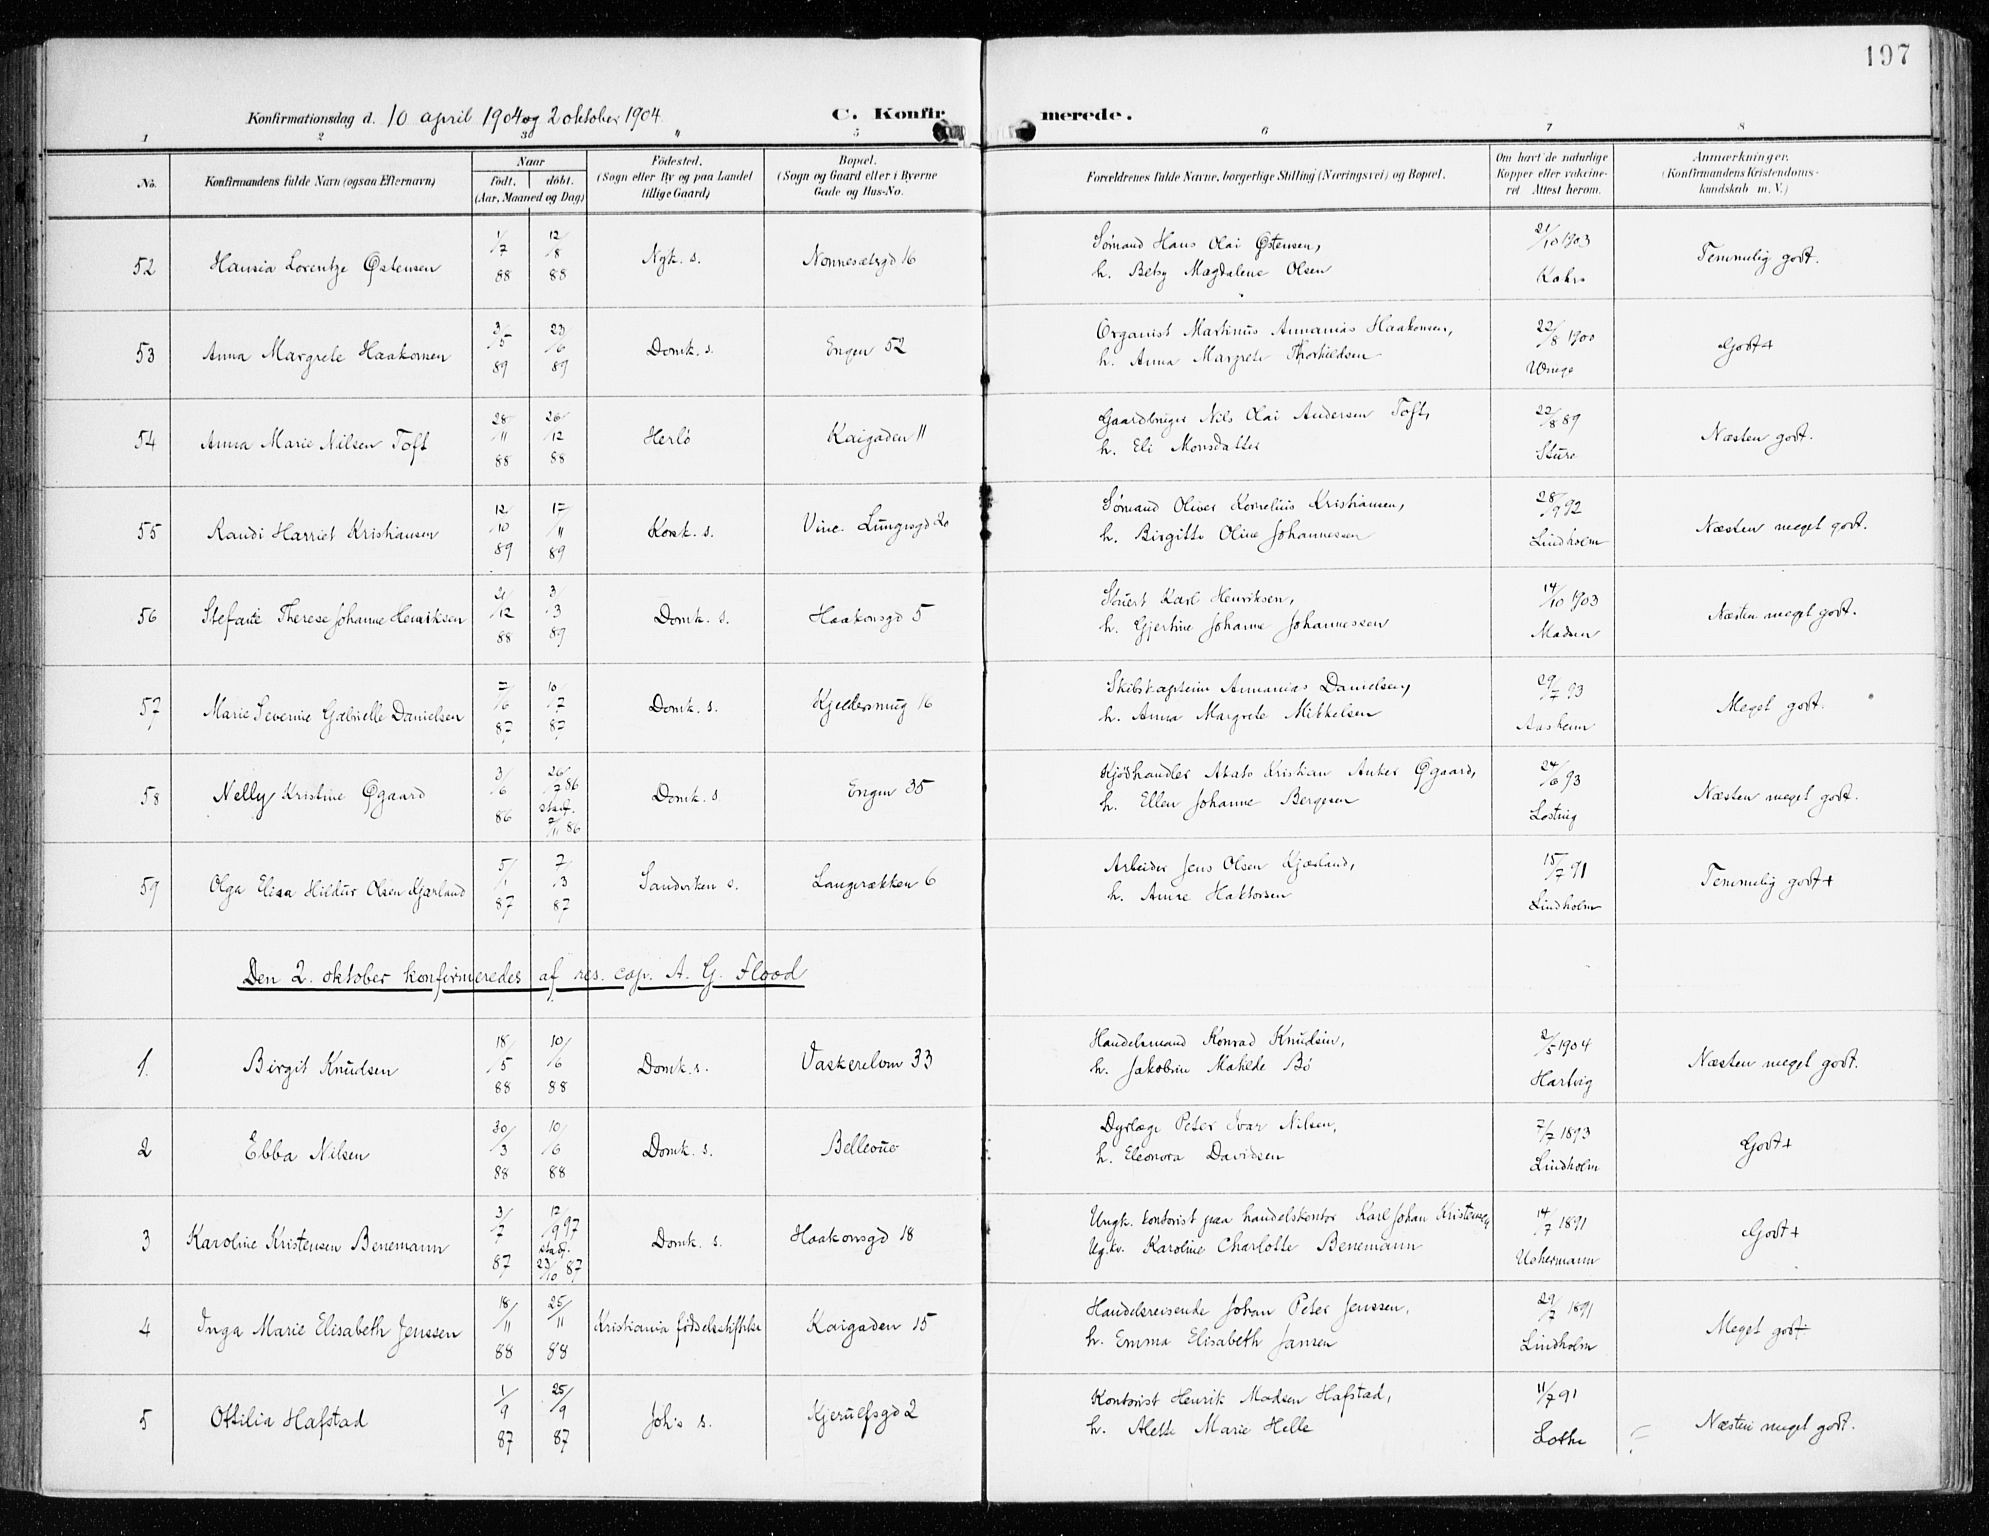 197
Konfirmationsdag d. 10 april 1904 og 2 oktober 1904. C. Konfirmerede.
1 2 3 " 5 6 7 8
No. Konfirmandens fulde Navn (ogsaa Efternavn) Naar født. døbt. (Aar, Maaned og Dag) Fødested. (Sogn eller By og paa Landet tillige Gaard) Bopæl. (Sogn og Gaard eller i Byerne Gade og Hus-No. Forældrenes fulde Navne, borgerlige Stilling (Næringsvei) og Bopæl. Om havt de naturlige Kopper eller vakcineret Attest herom. Anmærkninger. (Konfirmandens Kristendomskundskab m. V.)
52 Hansia Lorentze Østensen 1/7 88 12/8 88 Nyk. s. Nonnesætergd 16 Sømand Hans Olai Østensen, h. Betsy Magdalene Olsen 21/10 1903 Kahrs Temmelig godt.
53 Anna Margrete Haakonsen 3/5 89 23/6 89 Domk. s. Engen 52 Organist Martinus Annanias Haakonsen, h. Anna Margrete Thorkildsen 22/8 1900 Godt+
54 Anna Marie Nilsen Toft 28/11 88 26/12 88 Herlø Kaigaden 11 Gaardbruger Nils Olai Andersen Toft, h. Eli Monsdatter 22/8 89 Sture Næsten godt.
55 Randi Harriet Kristiansen 12/10 89 17/11 89 Korsk. s. Vinc. Lungesgd 20 Sømand Oliver Kornelius Kristiansen, h. Birgitte Oline Johannessen 28/9 92 Lindholm Næsten meget godt.
56 Stefanie Therese Johanne Henriksen 21/12 88 3/3 89 Domk. s. Haakonsgd 5 Stuert Karl Henriksen, h. Gjertine Johanne Johannessen 14/10 1903 Madsen Næsten meget godt.
57 Marie Severine Gabrielle Danielsen 7/6 87 10/7 87 Domk. s. Kjeldersmug 16 Skibskaptein Annanias Danielsen, h. Anna Margrete Mikkelsen 29/7 93 Aasheim Meget godt.
58 Nelly Kristine Øgaard 3/6 86 26/7 86 stadf. 7/11 86 Domk. s. Engen 35 Kjødhandler Kristian Anker Øgaard, h. Ellen Johanne Bergesen 24/6 93 Næsten meget godt.
59 Olga Elisa Hildur Olsen Kjærland 5/1 87 7/3 87 Sandviken s. Langerækken 6 Arbeider Jens Olsen Kjærland, h. Anne Haktorsen 15/7 91 Lindholm Temmelig godt+
Den 2. oktober konfirmeredes af res. cap. A. G. Flood
1. Birgit Knudsen 18/5 88 10/6 88 Domk. s. Vaskerelven 33 Handelsmand Konrad Knudsen, h. Jakobine Mathilde Bø 2/5 1904 Hartvig Næsten meget godt.
2 Ebba Nilsen 30/3 88 10/6 88 Domk. s. Bellevue Dyrlæge Peter Ivar Nilsen, h. Eleonora Davidsen 7/7 1893 Lindholm Godt+
3 Karoline Kristensen Benemann 3/7 87 17/9 97 stadf. 23/10 87 Domk. s. Haakonsgd 18 Ungk. kontorist paa handelskontor Karl Johan Kristensen, Ug.kv. Karoline Charlotte Benemann 14/7 1891 Uchermann Godt+
4 Inga Marie Elisabeth Jenssen 18/11 88 25/11 88 Kristiania fødselsstiftelse Kaigaden 15 Handelsreisende Johan Peter Jenssen, h. Emma Elisabeth Jansen 29/7 1891 Lindholm Meget godt
5 Ottilia Hafstad 1/9 87 25/9 87 Joh's s. Kjerulfsgd 2 Kontorist Henrik Madsen Hafstad, h. Alette Marie Helle 11/7 91 Lothe Næsten meget godt.